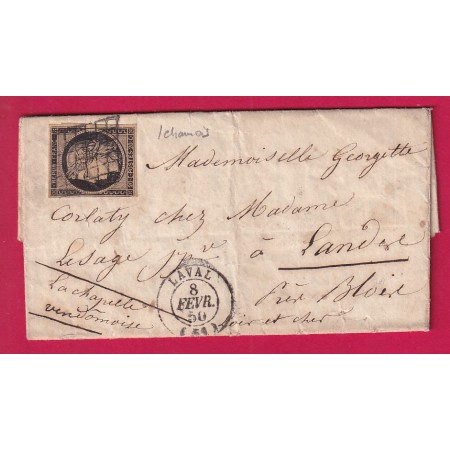 1chamois
Mademoiselle Georgette
Corlaty chez Madame
Lesage pp.re à Landes
La chapelle
vendômoise
près Blois
Loir et cher
LAVAL
8
FEVR.
50
(51)